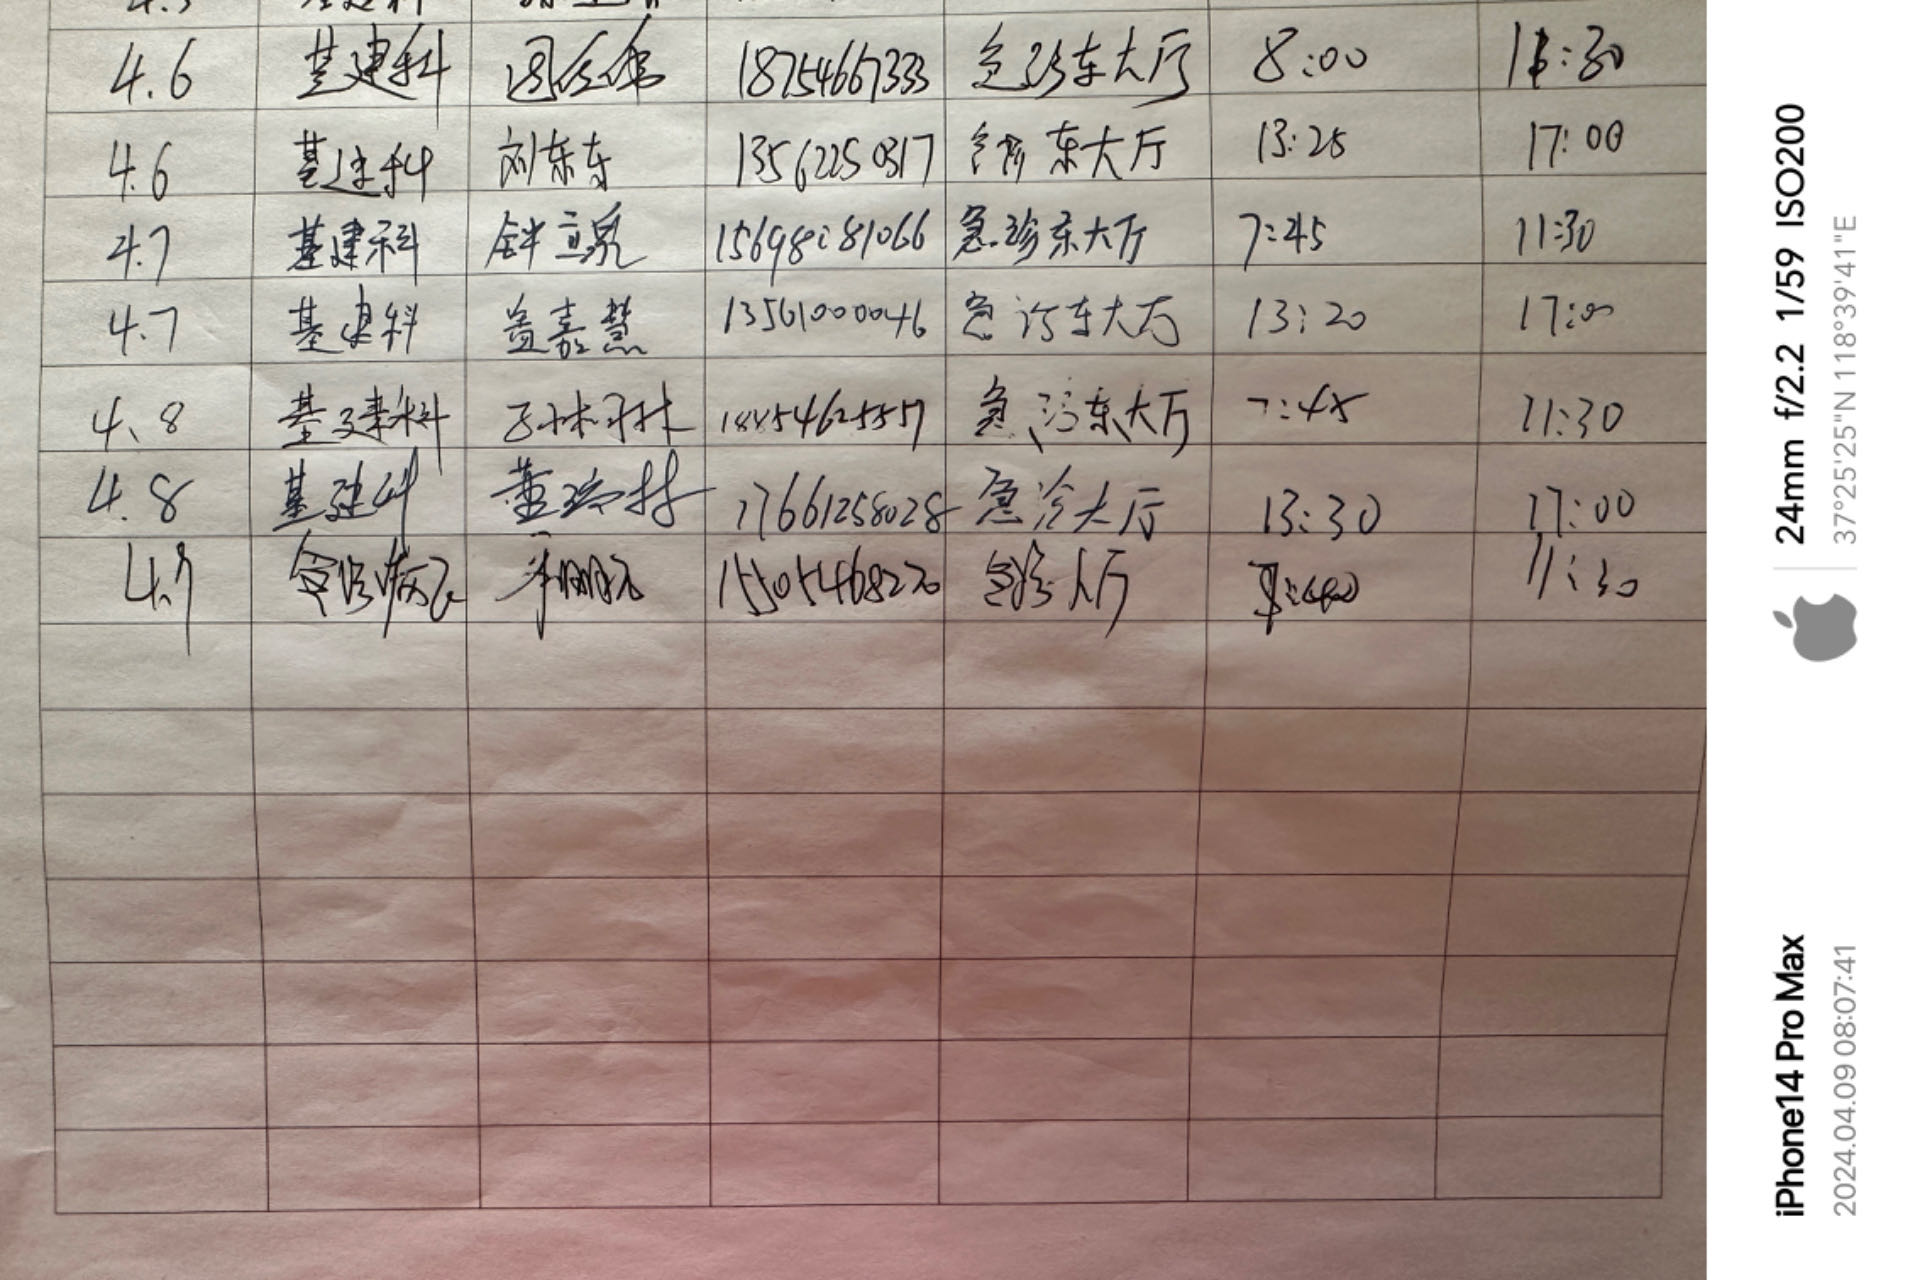 4.6 基建科 18754667333 急诊东大厅 8:00
4.6 基建科 刘东东 13562250317 急诊东大厅 13:25 17:00
4.7 基建科 15698181066 急诊东大厅 7:45 11:30
4.7 基建科 盖嘉慧 13561000046 急诊东大厅 13:20 17:00
4.8 基建科 急诊东大厅 7:45 11:30
4.8 基建科 17661258028 急诊大厅 13:30 17:00
4.9 15505468220 急诊大厅 11:30
24mm f/2.2 1/59 ISO200
37°25'25"N 118°39'41"E
iPhone14 Pro Max
2024.04.09 08:07:41